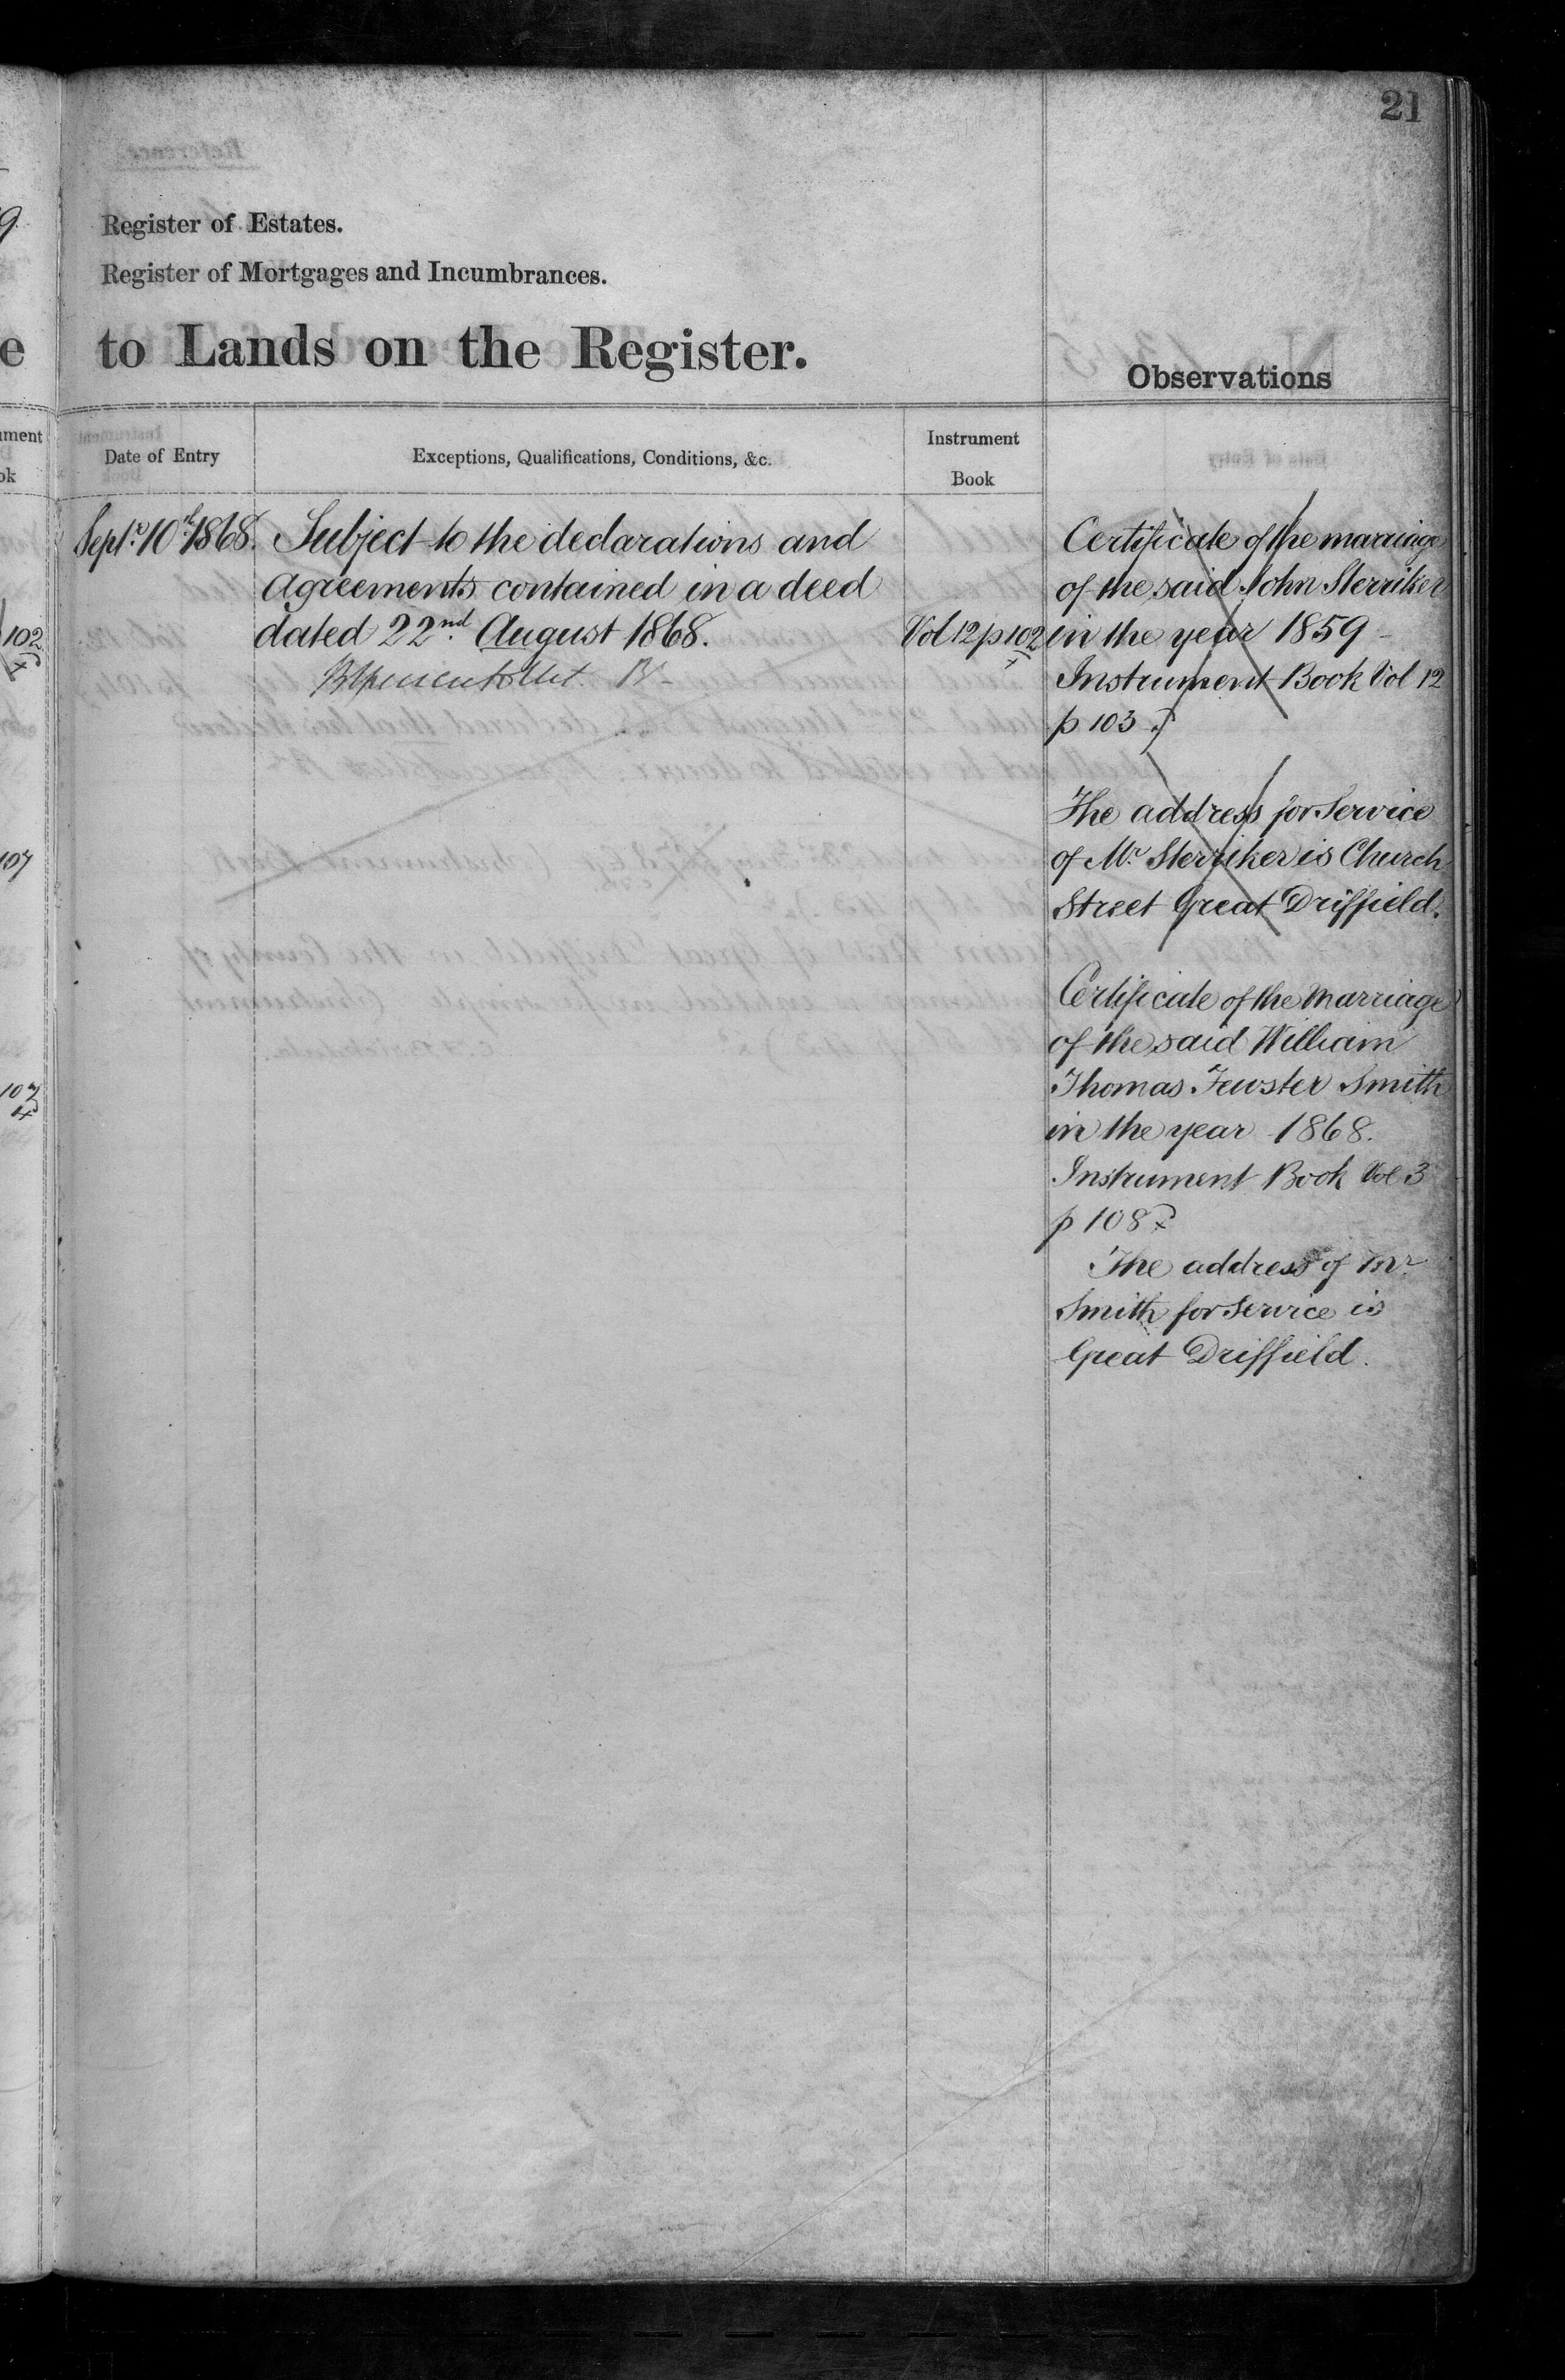 21
Register of Estates.
Register of Mortgages and Incumbrances.
to Lands on the Register.
Observations
Date of Entry
Exceptions, Qualifications, Conditions, &c.
Instrument
Book
Septr. 10th 1868.
Subject to the declarations and
agreements contained in a deed
dated 22nd. August 1868.
Vol 12 p 102
Certificate of the marriage
of the said John Sterriker
in the year 1859 -
Instrument Book Vol 12
p 103
The address for Service
of Mr. Sterriker is Church
Street Great Driffield.
Certificate of the Marriage
of the said William
Thomas Fewster Smith
in the year 1868.
Instrument Book Vol 3
p 108
The address of Mr.
Smith for Service is
Great Driffield.
ment
ok
e
9
102
107
107